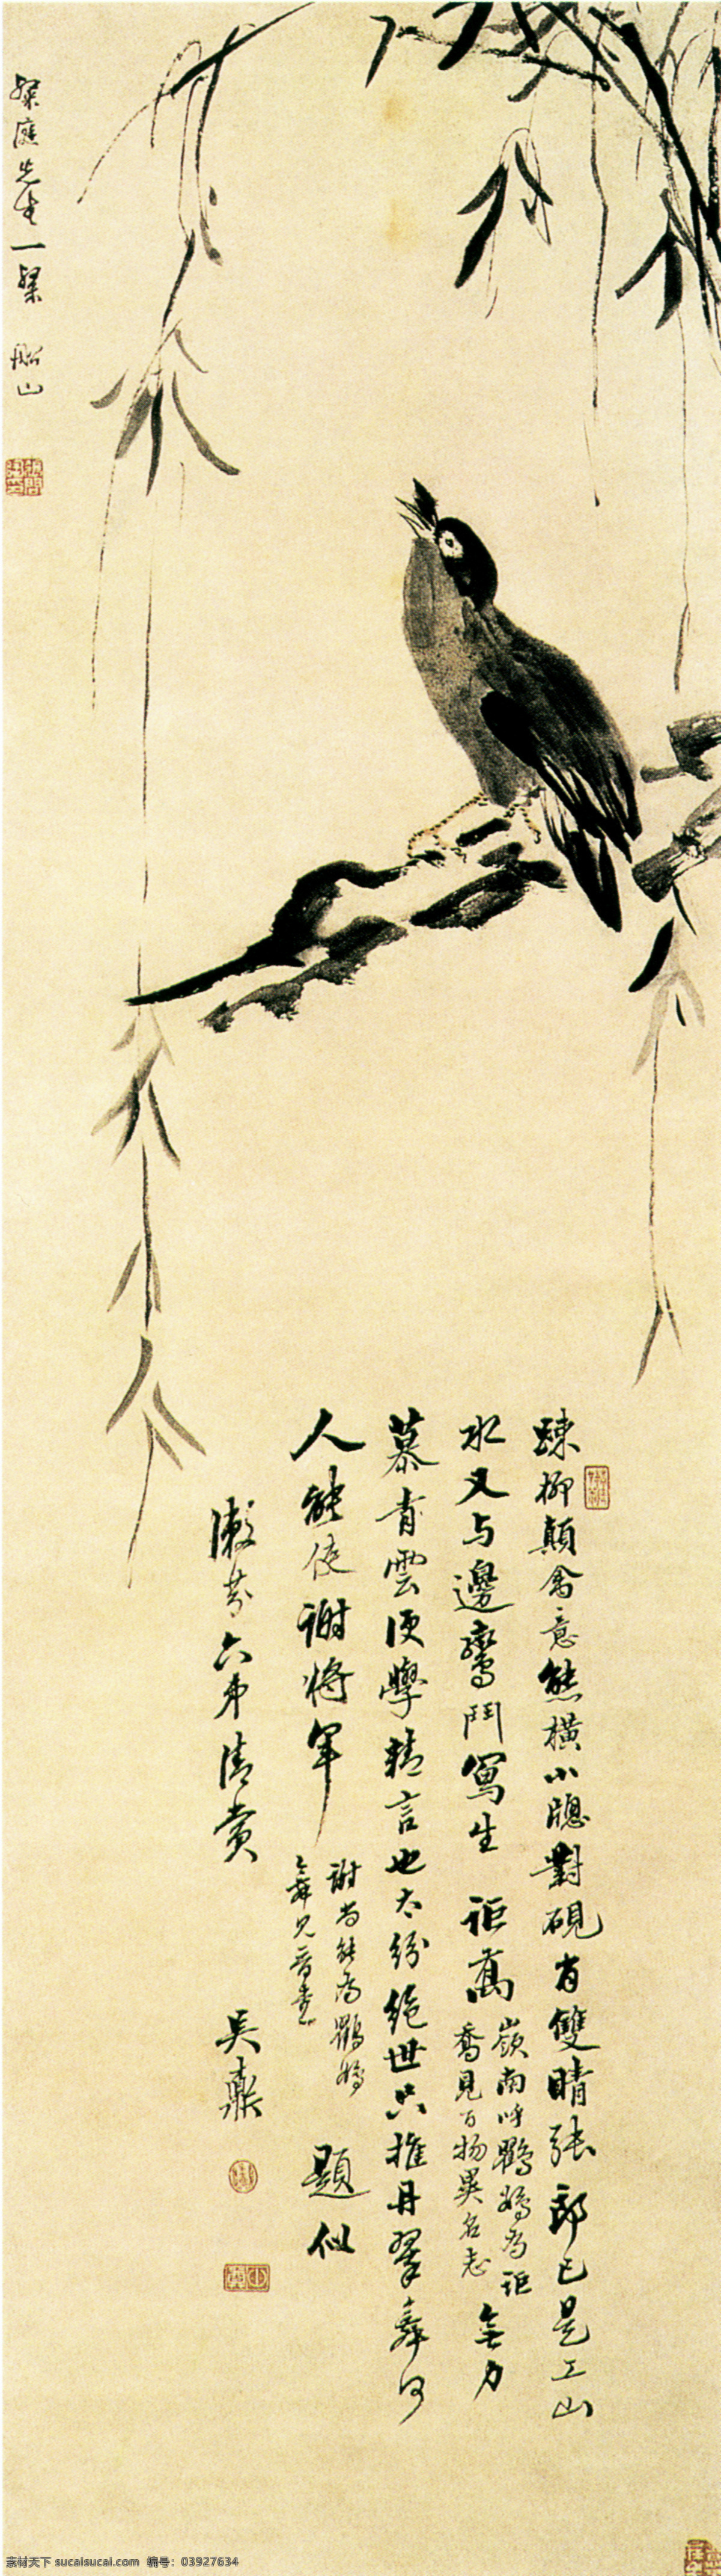 粲庭先生一粲 船山
踈柳顛禽意態橫小牕對硯有雙睛張郎已是工山
水又与邊鸞鬥寫生 詎
嶺南呼鸜鵒为詎
喬見百物異名志
無力
慕青雲便學精言也太紛絕世只推丹翠舞何
人能使謝將軍
謝尚能为鸜鵒
之舞見晉書
題似
漱芬六弟清賞
吳鼒
素材天下 sucaisucai.com 编号：03927634